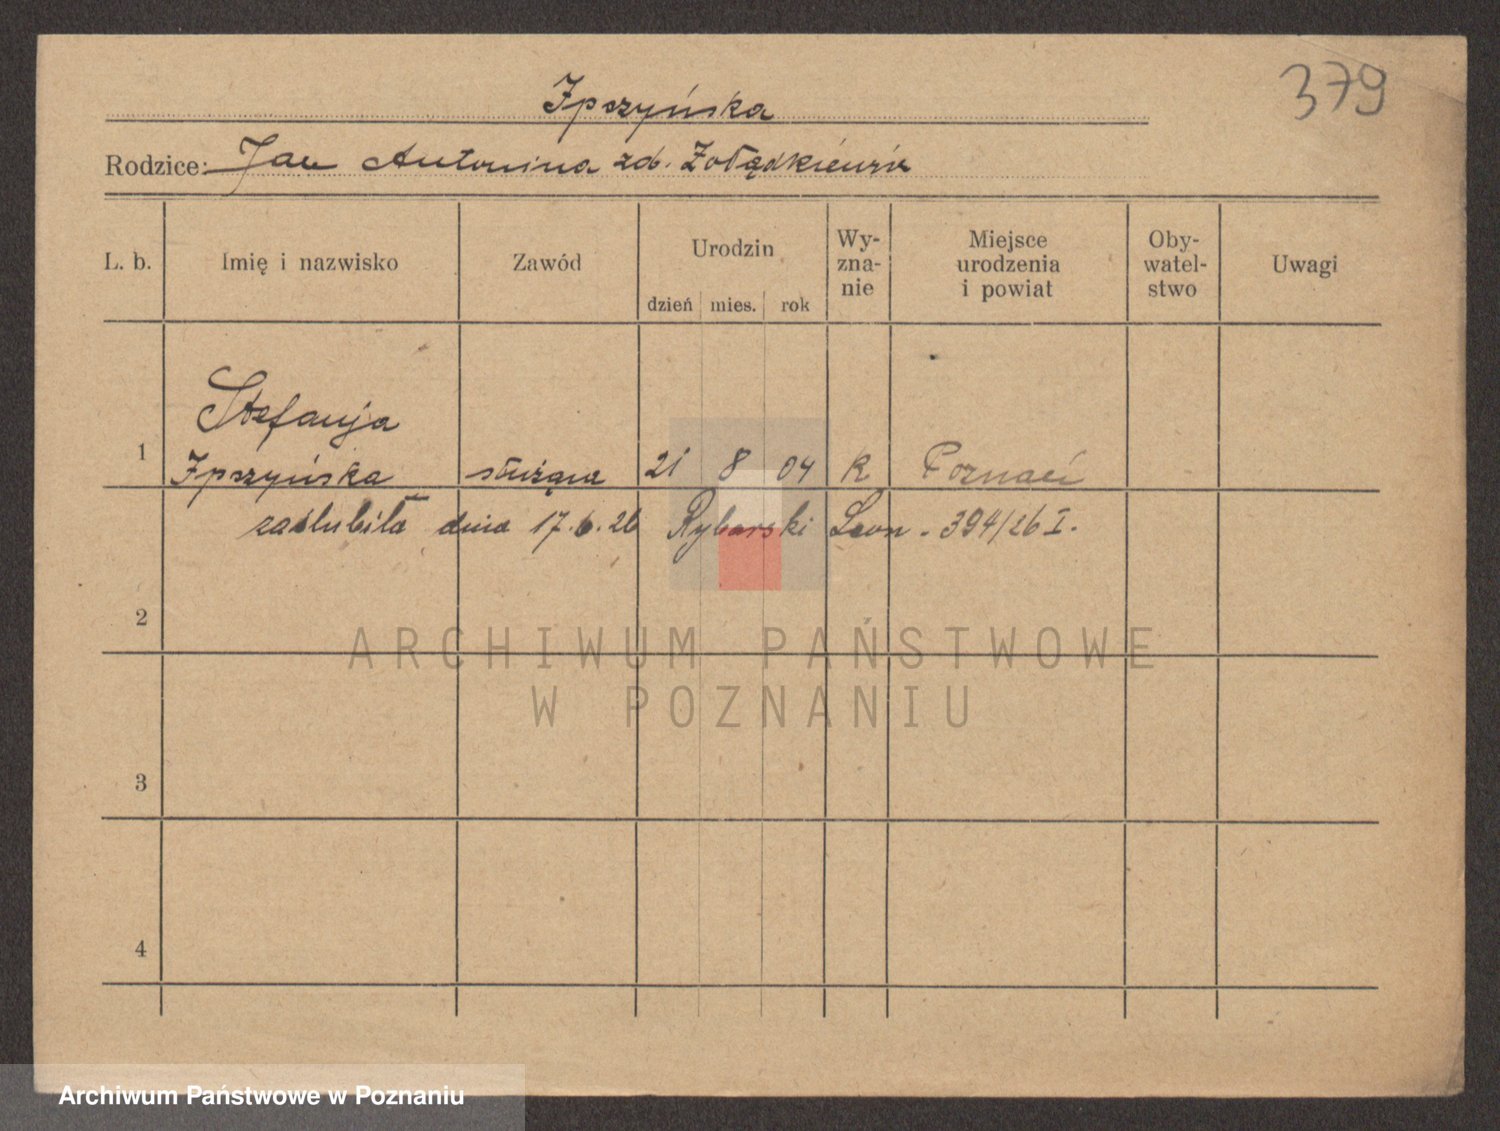 379
Ipszyńska
Rodzice: Jan Antonina zd. Żołądkiewicz
L. b. Imię i nazwisko Zawód Urodzin dzień mies. rok Wy-zna-nie Miejsce urodzenia i powiat Oby-watel-stwo Uwagi
Stefanja
1 Ipszyńska służąca 21 8 04 k Poznań
zaślubiła dnia 17.6.26 Rybarski Leon - 394/26 I.
2
ARCHIWUM PAŃSTWOWE
W POZNANIU
3
4
Archiwum Państwowe w Poznaniu